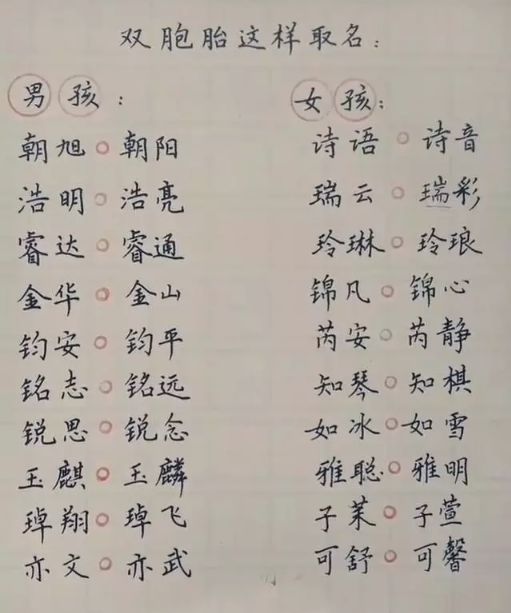 双胞胎这样取名:
男孩:
朝旭。朝阳
浩明。浩亮
睿达。睿通
金华。金山
钧安。钧平
铭志。铭远
锐思。锐念
玉麒。玉麟
琸翔。琸飞
亦文。亦武
女孩:
诗语。诗音
瑞云。瑞彩
玲琳。玲琅
锦凡。锦心
芮安。芮静
知琴。知棋
如冰。如雪
雅聪。雅明
子茉。子萱
可舒。可馨